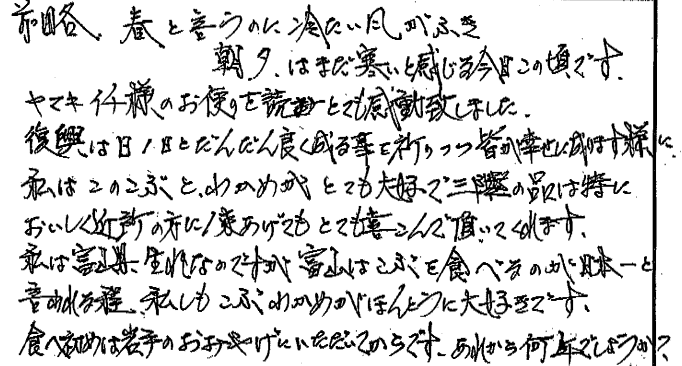 前略、春と言うのに冷たい風がふき
朝夕、はまだ寒いと感じる今日この頃です。
ヤマキイチ様のお便りを読とても感動致しました。
復興は日1日とだんだん良く成る事を祈りつつ皆が幸せに成ります様に、
私はこのこぶと、わかめが とても大好で三陸の品は特に
おいしく近所の方に1束あげてもとても喜こんで頂いてくれます、
私は富山県、生れなのですが 富山はこぶを食べるのが日本一と
言われる程、私しもこぶわかめがほんとうに大好きです、
食べ初めは岩手のおみやげにいただいてからです、あれから何年でしょうか?